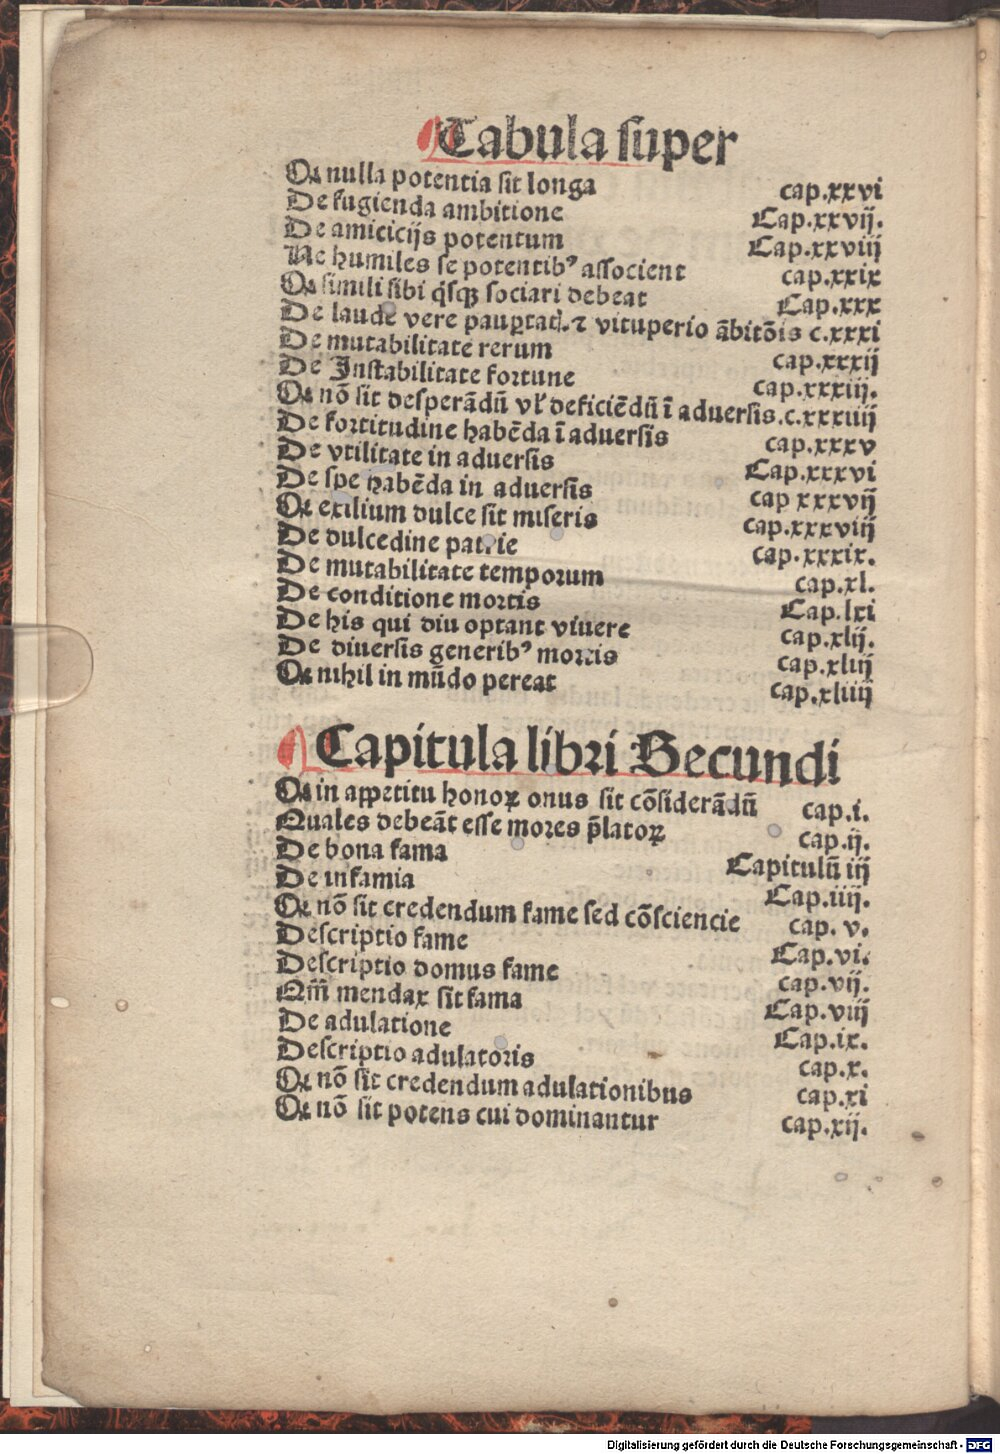 Tabula super
Qꝫ nulla potentia sit longa cap.xxvi
De fugienda ambitione Cap.xxvij.
De amicicijs potentum Cap.xxviij
Ne humiles se potentibꝰ associent cap.xxix
Qꝫ simili sibi q̇sqꝫ sociari debeat Cap.xxx
De laude vere paup̱tatꝭ. ⁊ vituperio ābitōis c.xxxi
De mutabilitate rerum cap.xxxij
De Instabilitate fortune cap.xxxiij.
Qꝫ nō sit desperādū vl̓ deficiēdū ī aduersis.c.xxxiiij
De fortitudine habēda ī aduersis cap.xxxv
De vtilitate in aduersis Cap.xxxvi
De spe habēda in aduersis cap xxxvij
Qꝫ exilium dulce sit miseris cap.xxxviij
De dulcedine patrie cap.xxxix.
De mutabilitate temporum cap.xl.
De conditione mortis Cap.lxi
De his qui diu optant viuere cap.xlij.
De diuersis generibꝰ mortis cap.xliij
Qꝫ nihil in mūdo pereat cap.xliiij
Capitula libri Secundi
Qꝫ in apꝑetitu honoꝝ onus sit cōsiderādū cap.i.
Quales debeāt esse mores p̄latoꝝ cap.ij.
De bona fama Capitulū iij
De infamia Cap.iiij.
Qꝫ nō sit credendum fame sed cōsciencie cap. v.
Descriptio fame Cap.vi.
Descriptio domus fame cap.vij.
Qm̄ mendax sit fama Cap.viij
De adulatione Cap.ix.
Descriptio adulatoris cap.x.
Qꝫ nō sit credendum adulationibus cap.xi
Qꝫ nō sit potens cui dominantur cap.xij.
Digitalisierung gefördert durch die Deutsche Forschungsgemeinschaft - DFG